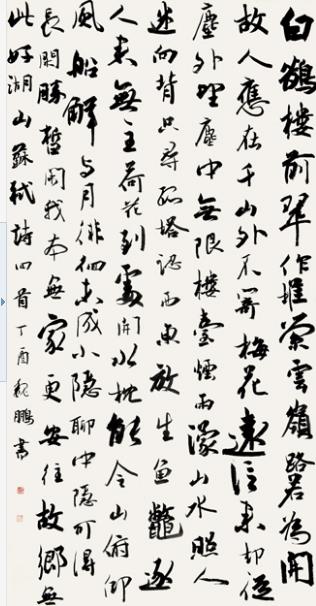 白鶴樓前翠作堆縈雲嶺路若為開
故人應在千山外不寄梅花遠信來却從
塵外望塵中無限樓臺煙雨濛山水照人
迷向背只尋孤塔認西東放生魚鱉逐
人來無主荷花到處開水枕能令山俯仰
風船解与月徘徊未成小隱聊中隱可得
長閑勝暫閑我本無家更安往故鄉無
此好湖山蘇軾詩四首丁酉魏鵬書